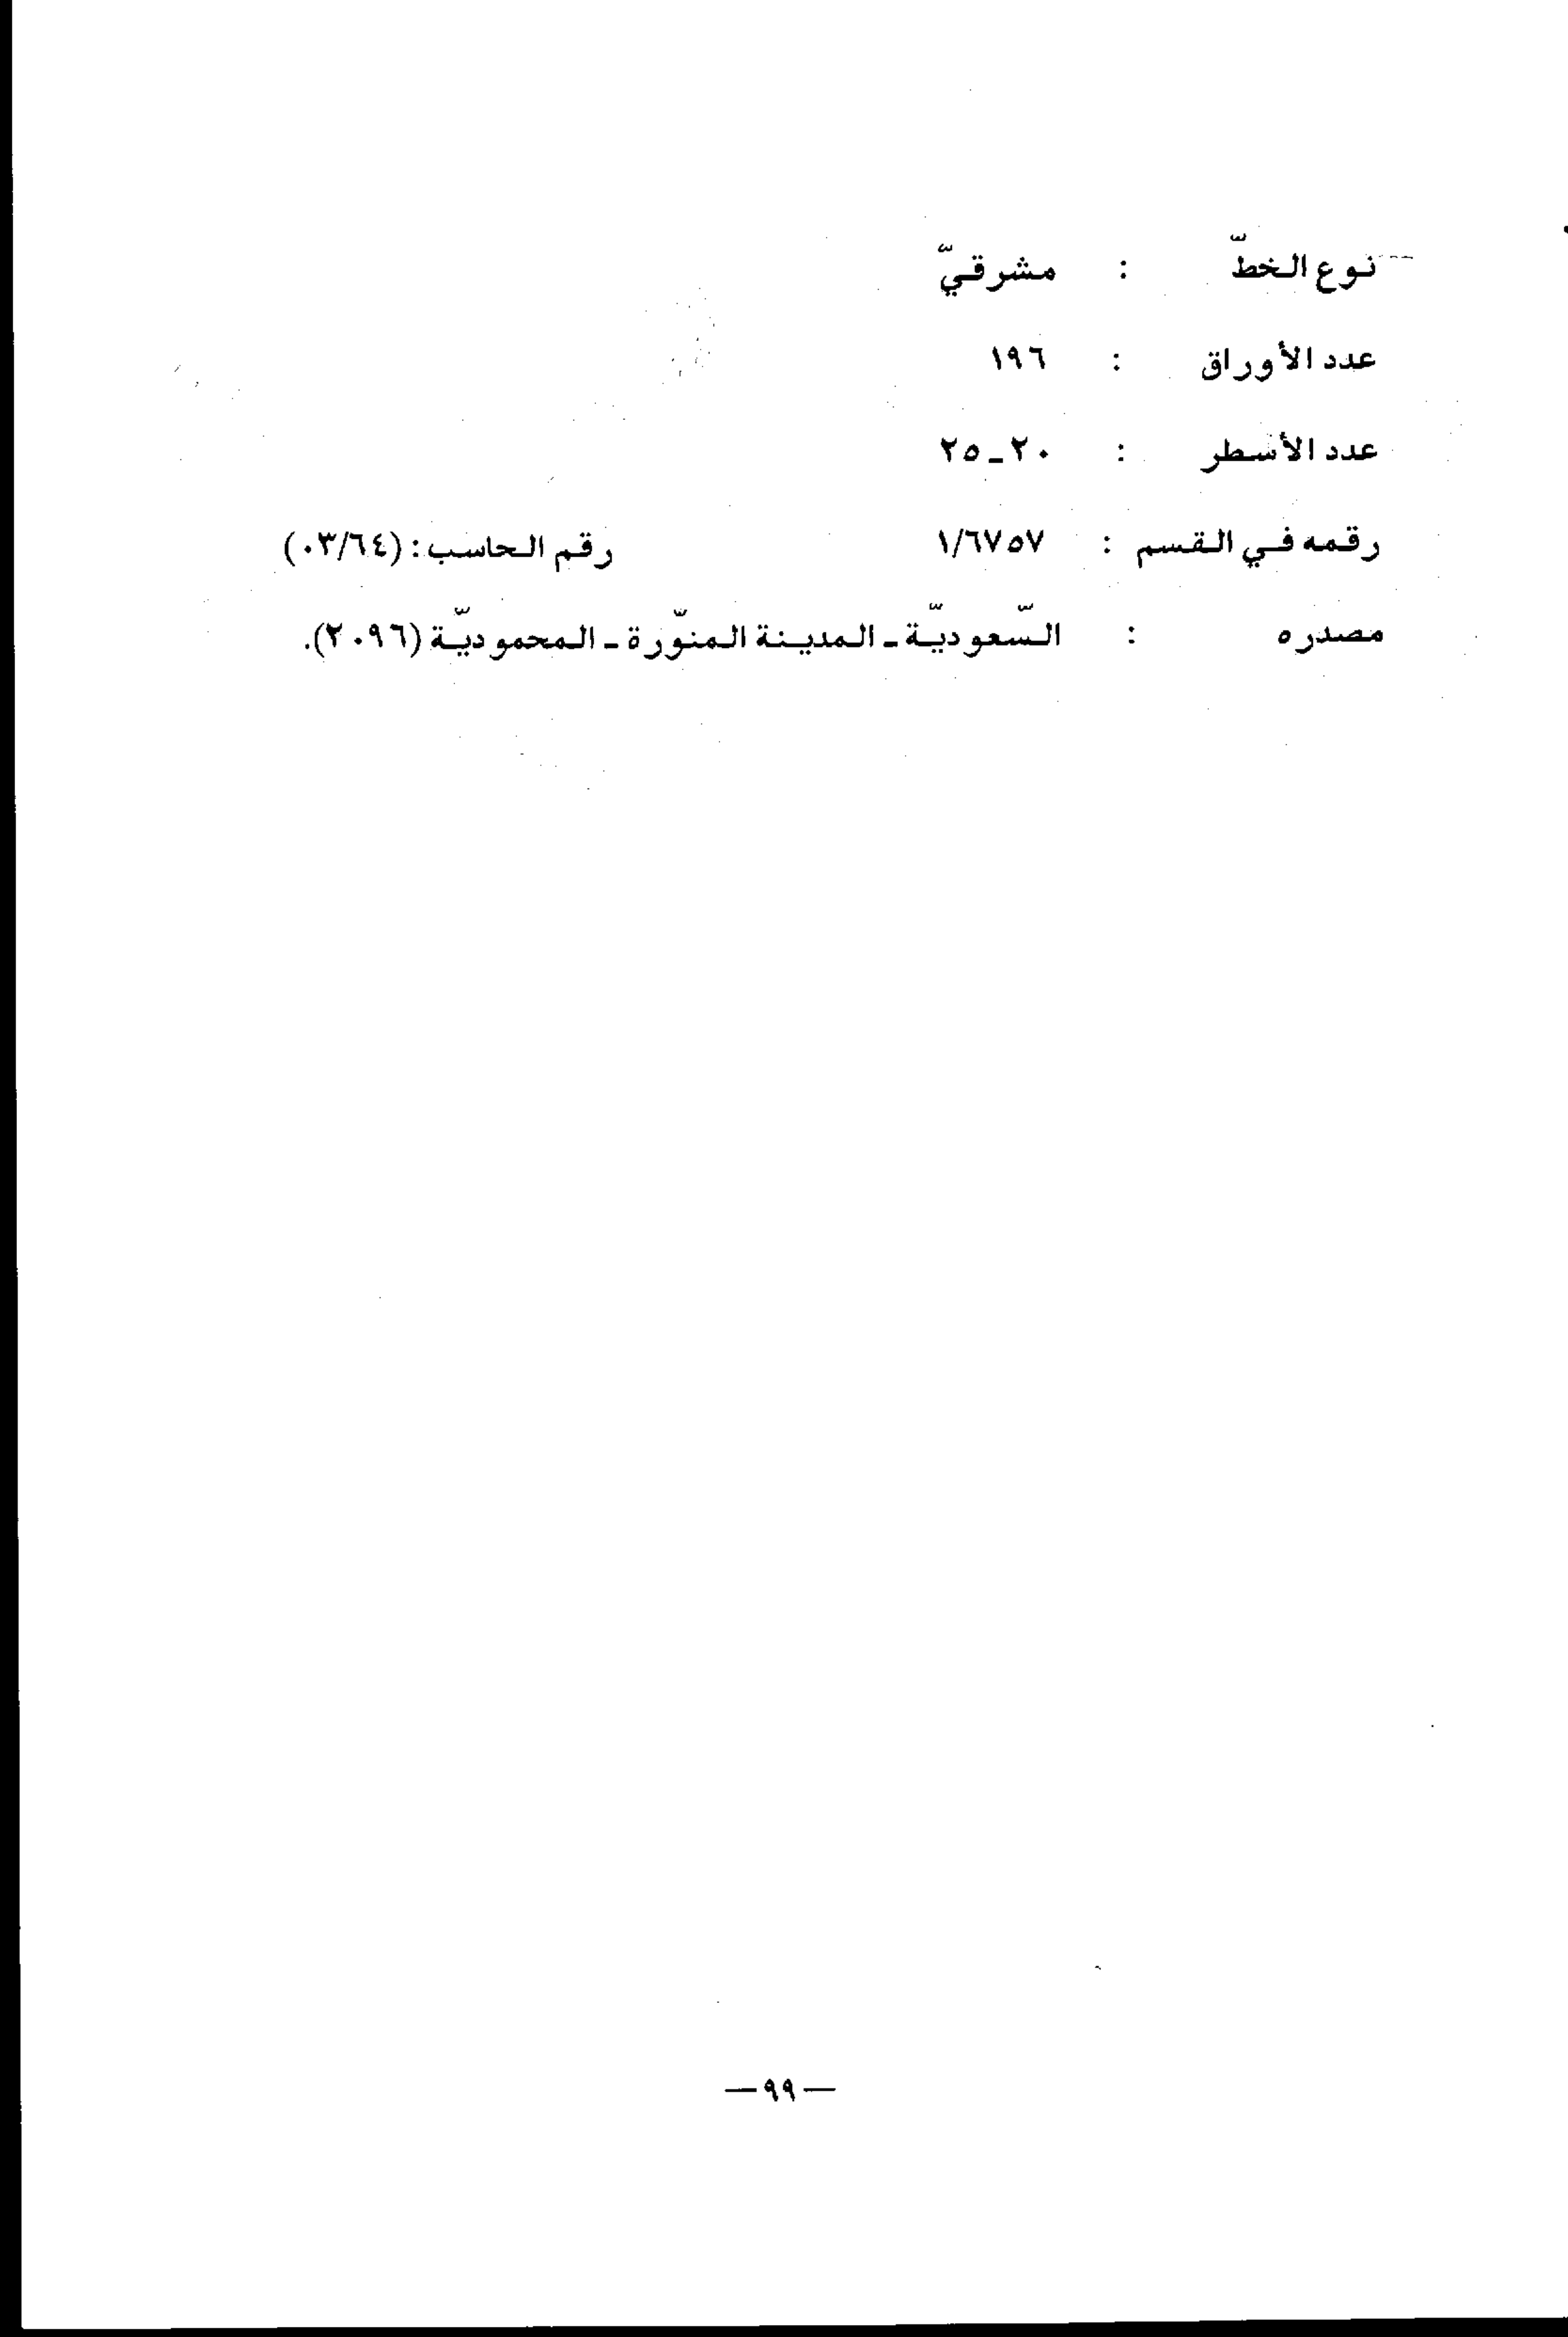 نوع الخطّ : مشرقيّ
عدد الأوراق : ١٩٦
عدد الأسطر : ٢٠ـ٢٥
رقمه في القسم : ١/٦٧٥٧ رقم الحاسب : (٠٣/٦٤)
مصدره : السّعوديّة ـ المدينة المنوّرة ـ المحموديّة (٢٠٩٦).
— ٩٩ —